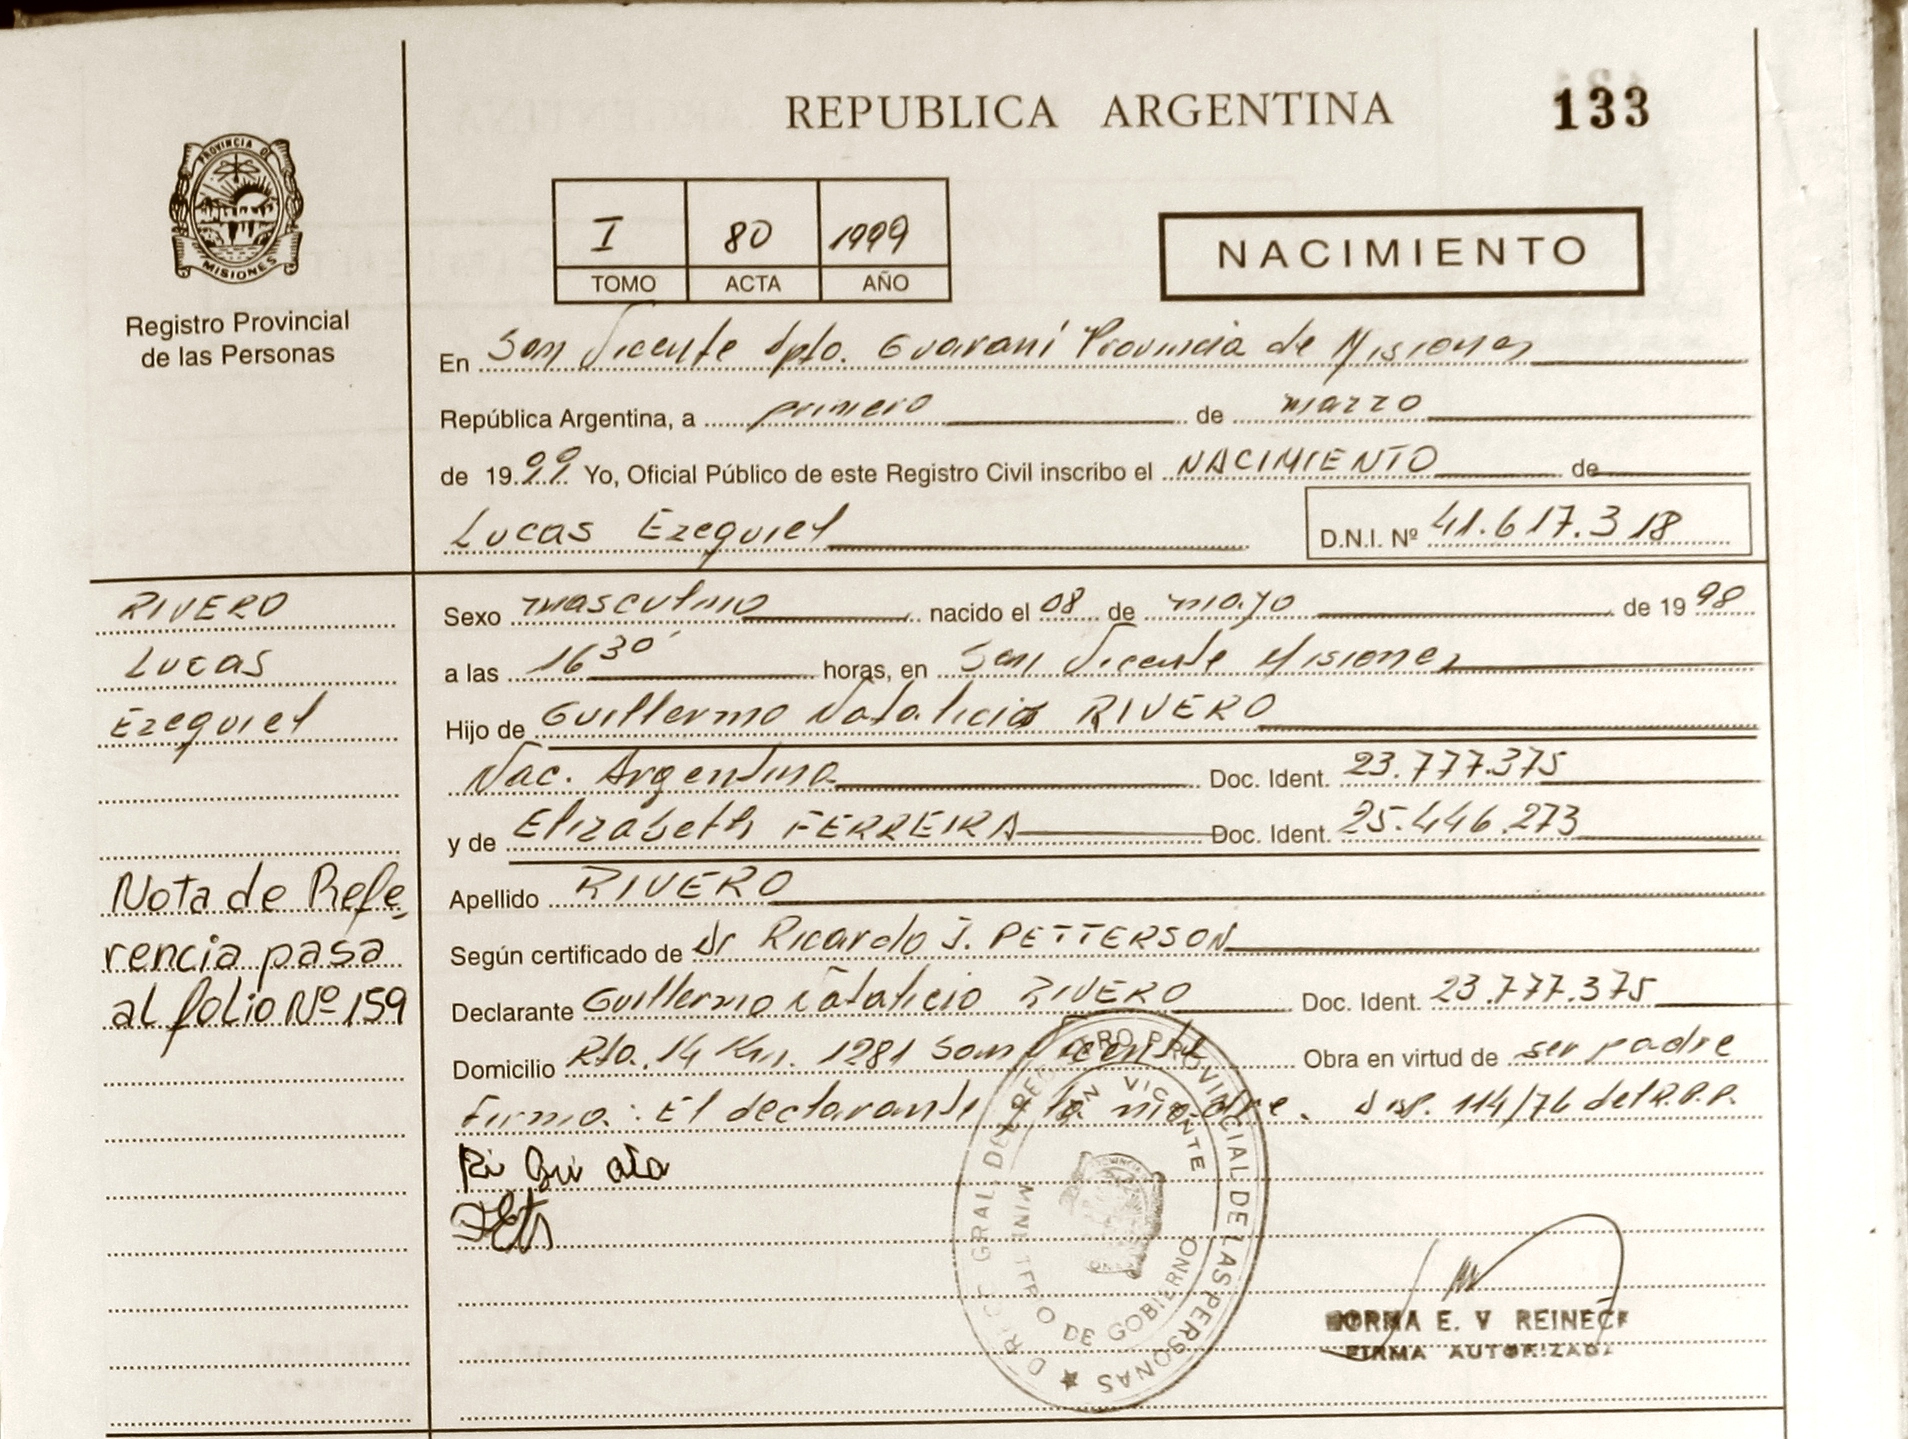 REPUBLICA ARGENTINA
133
PROVINCIA DE
MISIONES
Registro Provincial
de las Personas
I 80 1999
TOMO ACTA AÑO
NACIMIENTO
En San Vicente Dpto. Guaraní Provincia de Misiones
República Argentina, a primero de marzo
de 1999 Yo, Oficial Público de este Registro Civil inscribo el NACIMIENTO de
Lucas Ezequiel
D.N.I. Nº 41.617.318
RIVERO
Lucas
Ezequiel
Sexo masculino nacido el 08 de mayo de 1998
a las 16 30' horas, en San Vicente Misiones
Hijo de Guillermo Natalicio RIVERO
Nac. Argentina Doc. Ident. 23.777.375
y de Elizabeth FERREIRA Doc. Ident. 25.446.273
Nota de Refe-
rencia pasa
al folio Nº 159
Apellido RIVERO
Según certificado de Dr Ricardo J. PETTERSON
Declarante Guillermo Natalicio RIVERO Doc. Ident. 23.777.375
Domicilio Rta. 14 Km. 1281 San Vicente Obra en virtud de ser padre
Firma: El declarante y la madre. Disp. 114/76 del R.P.P.
GRAL. DEL REGISTRO PROVINCIAL DE LAS PERSONAS
SAN VICENTE
MINISTERIO DE GOBIERNO
NORMA E. V REINECK
FIRMA AUTORIZADA